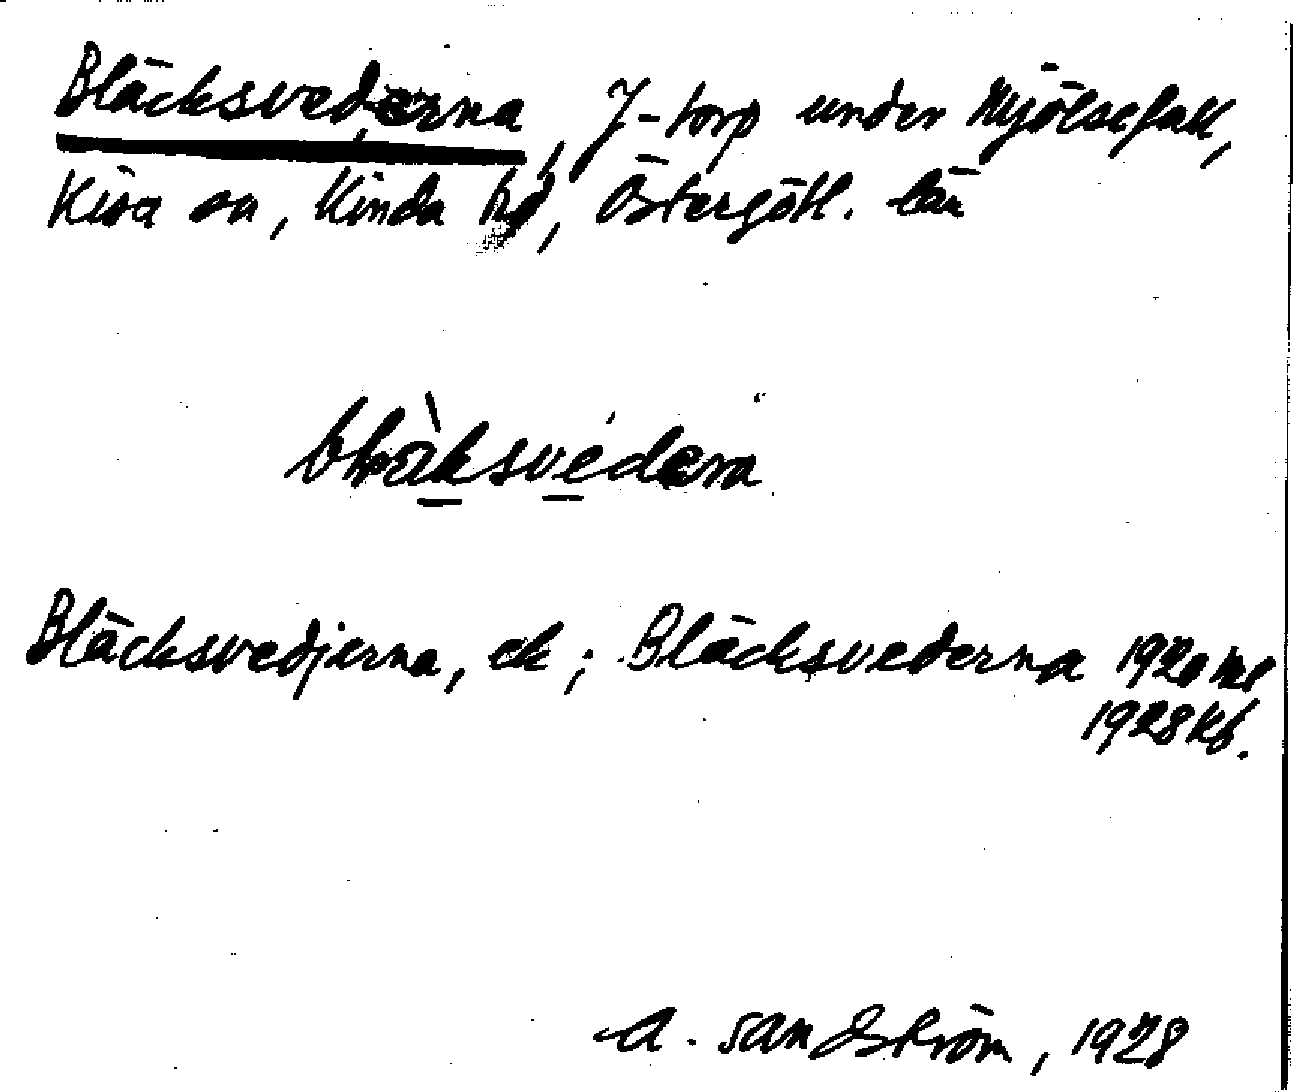 Bläcksvederna, J-torp under Mjölsefall,
Kisa sn, Kinda hd, Östergötl. län
Bläcksvedjerna, ek; Bläcksvederna 1920
1928 kb.
A. Sandström, 1928